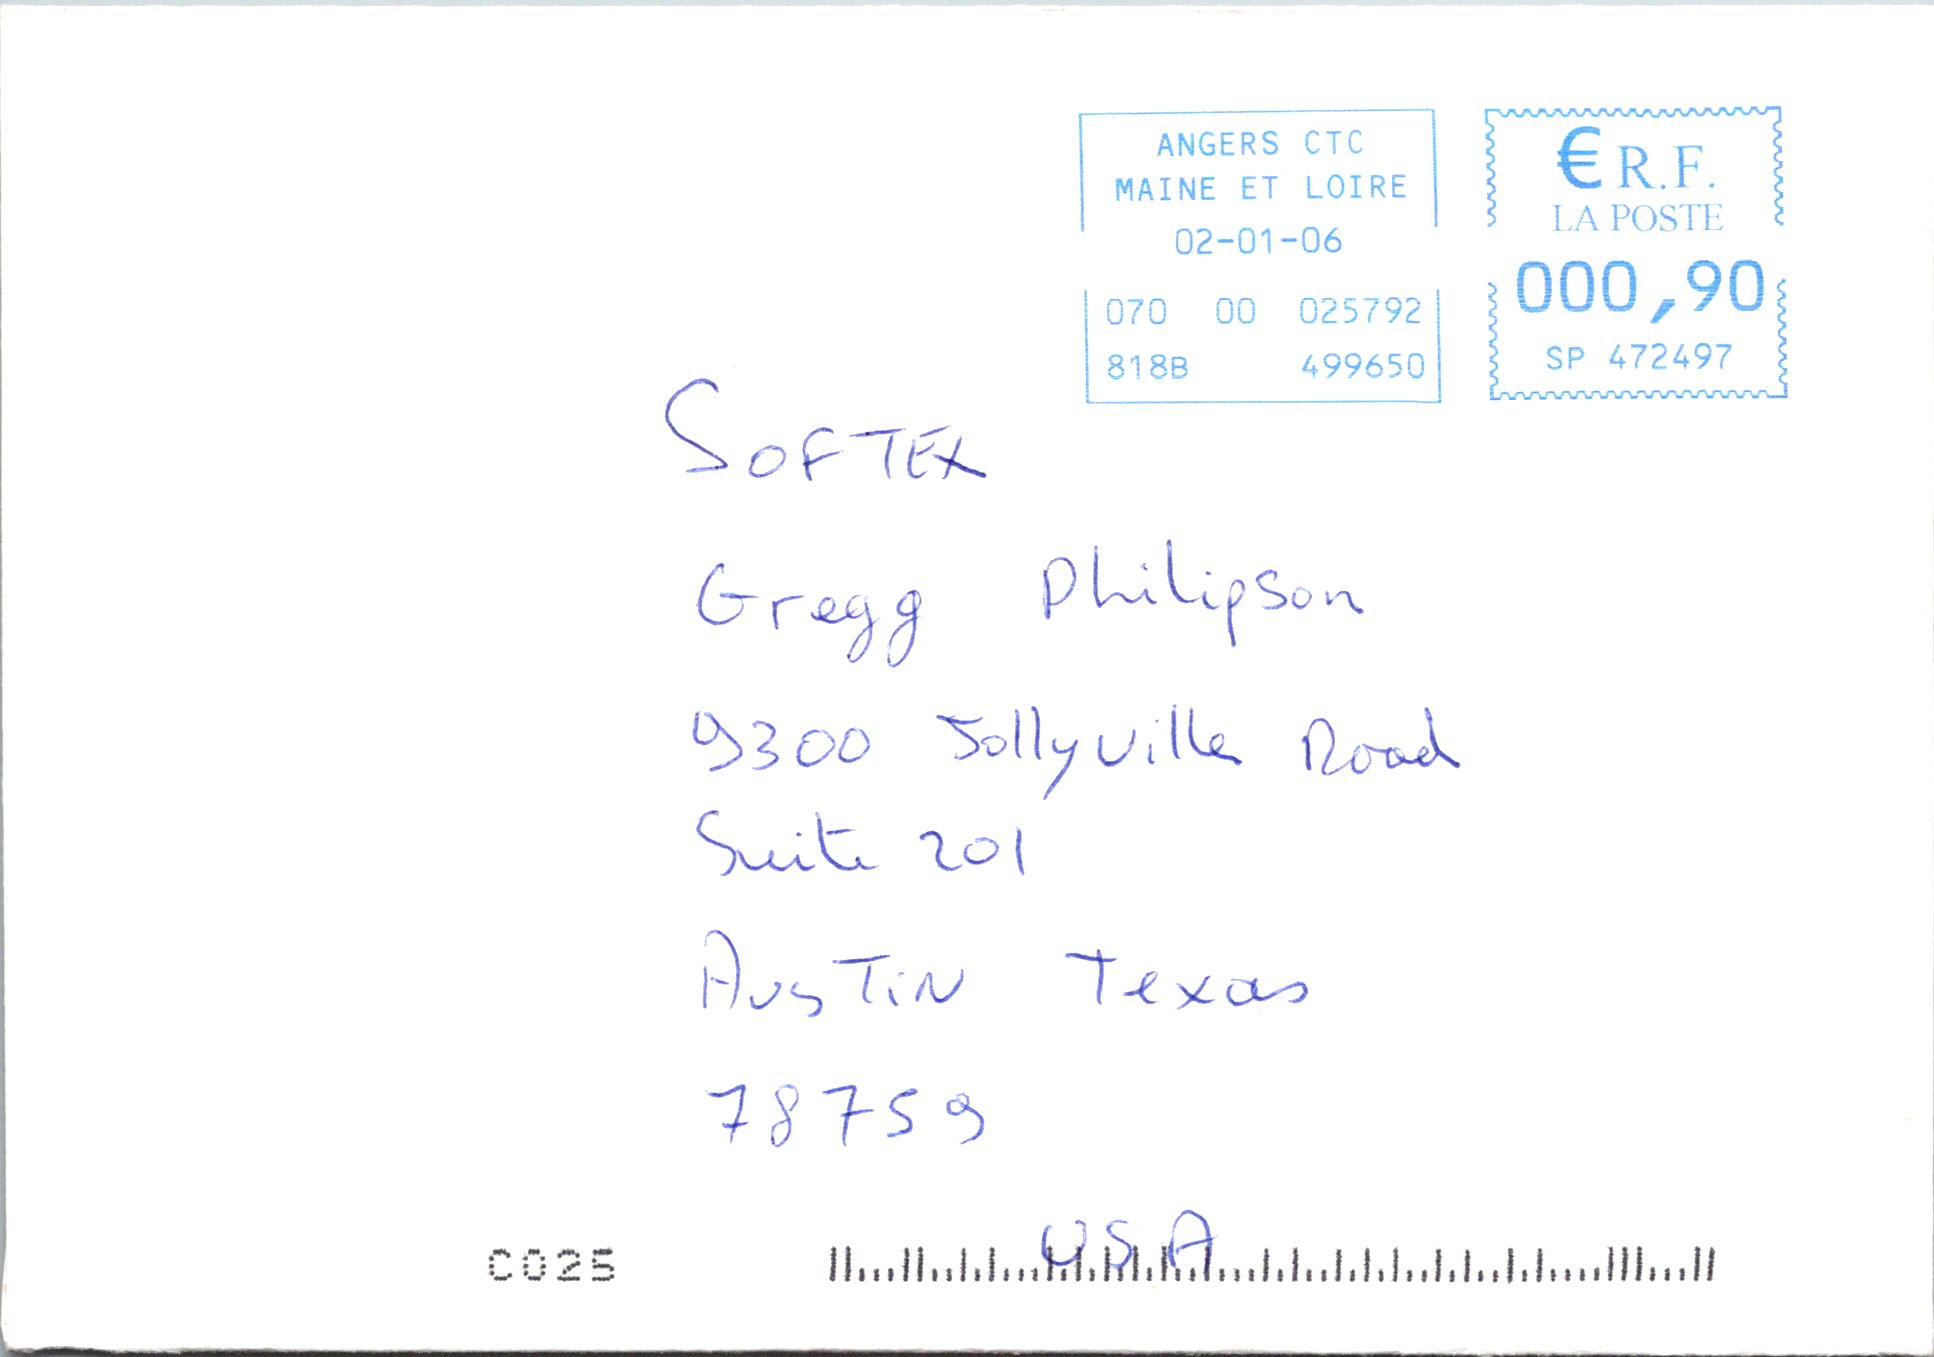 ANGERS CTC
MAINE ET LOIRE
02-01-06
070 00 025792
818B 499650
€ R.F.
LA POSTE
000,90
SP 472497
SOFTEX
Gregg Philipson
9300 Jollyville Road
Suite 201
AUSTIN Texas
78759
USA
C025